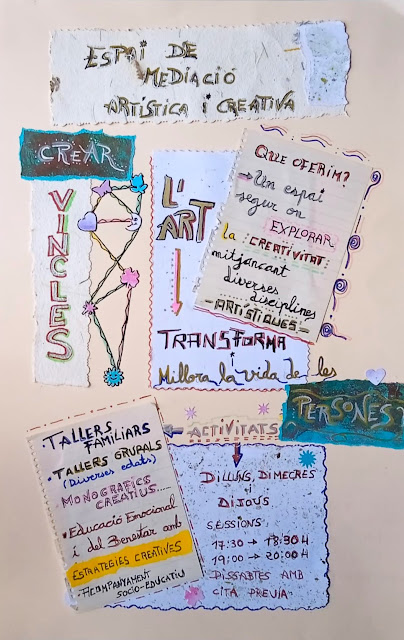 ESPAI DE
MEDIACIÓ
ARTÍSTICA i CREATIVA
CREAR
VINCLES
L'
ART
TRANSFORMA
Millora la vida de les
PERSONES
QUE OFERIM?
→ Un espai
segur on
EXPLORAR
la CREATIVITAT
mitjançant
diverses
disciplines
-ARTÍSTIQUES-
← ACTIVITATS
• TALLERS
FAMILIARS
• TALLERS GRUPALS
(Diverses edats)
• MONOGRÀFICS
CREATIUS.....
• Educació Emocional
i del Benestar amb
ESTRATÈGIES CREATIVES
• ACOMPANYAMENT
SOCIO-EDUCATIU
DILLUNS, DIMECRES
i
DIJOUS
SESSIONS:
17:30 → 18:30 H
19:00 → 20:00 H
DISSABTES AMB
CITA PRÈVIA